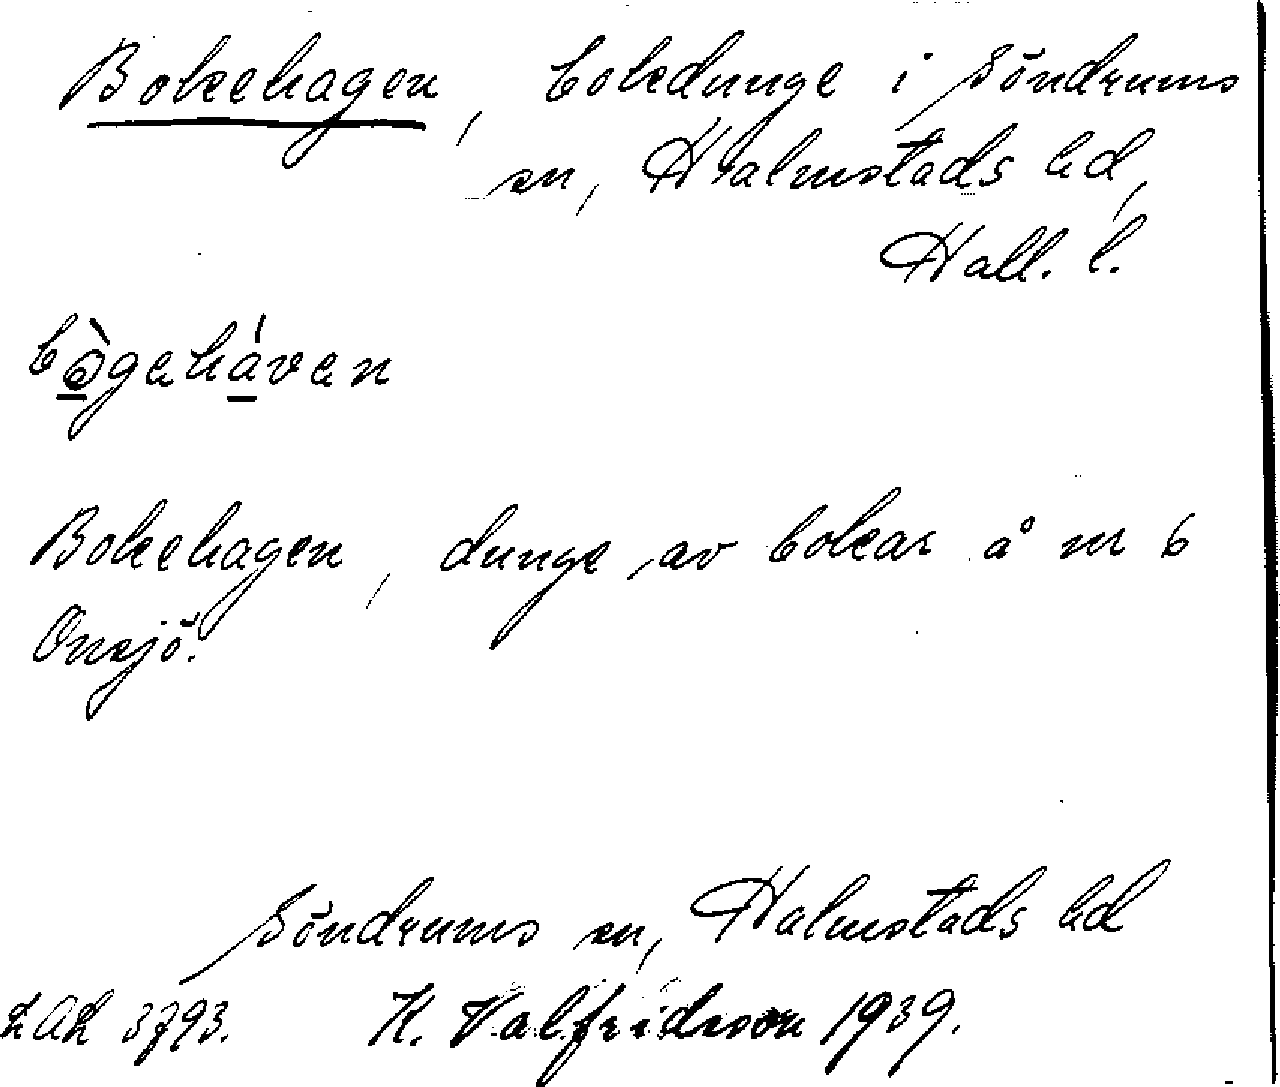 Bokehagen, bokdunge i Söndrums
sn, Halmstads hd,
Hall. l.
bògehávan
Bokehagen, dunge av bokar å nr 6
Onsjö.
Söndrums sn, Halmstads hd
LAL 3793. K. Valfridsson 1939.